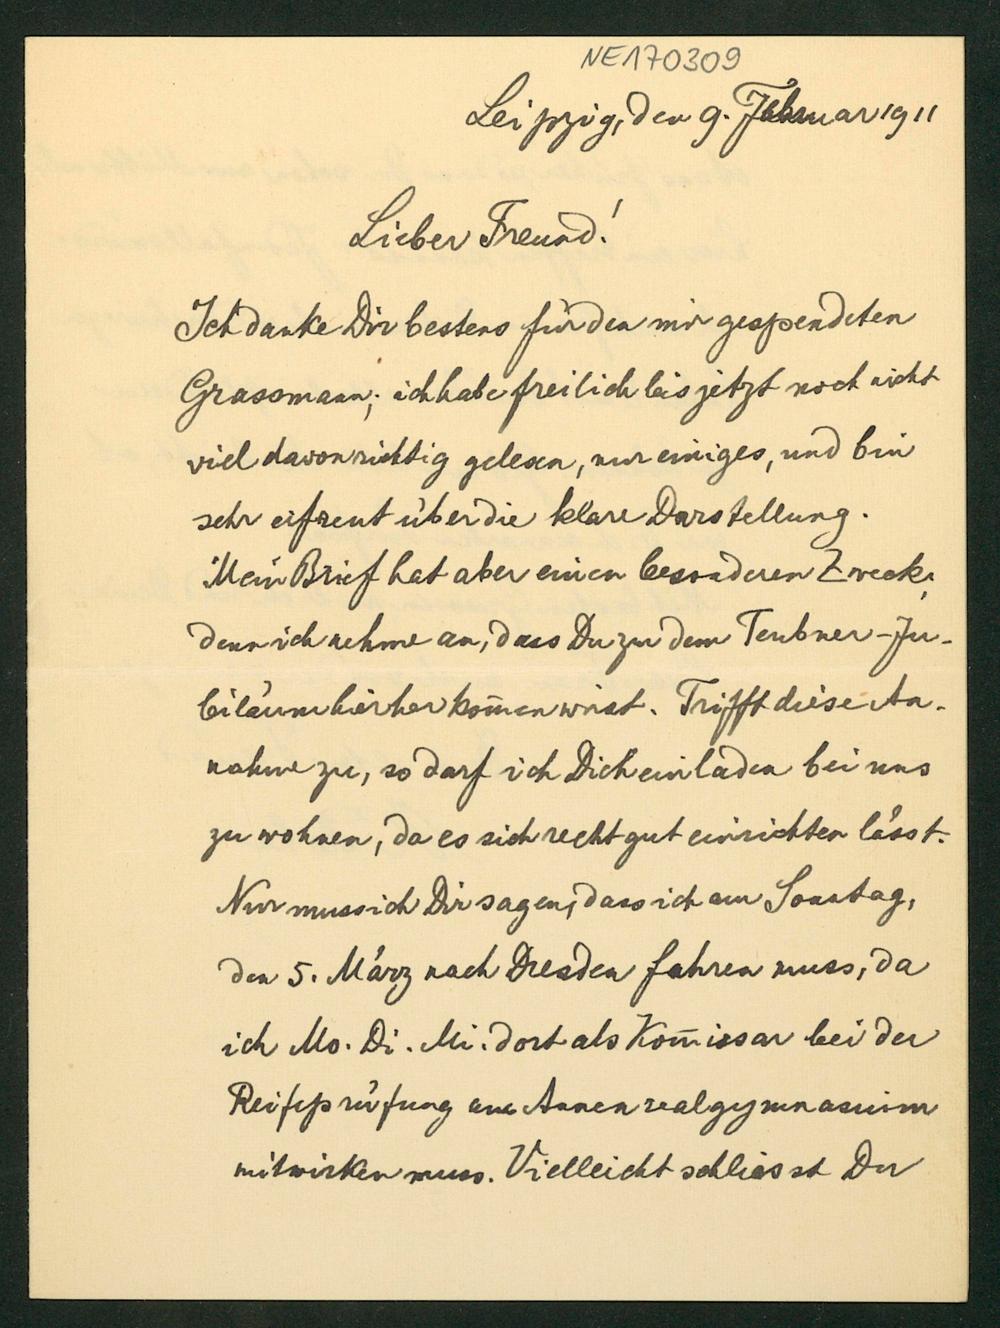 NE170309
Leipzig, den 9. Februar 1911
Lieber Freund!
Ich danke Dir bestens für den mir gespendeten
Grassmann; ich habe freilich bis jetzt noch nicht
viel davon richtig gelesen, nur einiges, und bin
sehr erfreut über die klare Darstellung.
Mein Brief hat aber einen besonderen Zweck;
denn ich nehme an, dass Du zu dem Teubner-Ju-
biläum hierher kom̅en wirst. Trifft diese An-
nahme zu, so darf ich Dich einladen bei uns
zu wohnen, da es sich recht gut einrichten lässt.
Nur muss ich Dir sagen, dass ich am Sonntag,
den 5. März nach Dresden fahren muss, da
ich Mo. Di. Mi. dort als Kom̅issar bei der
Reifeprüfung am Annenrealgymnasium
mitwirken muss. Vielleicht schliesst Du